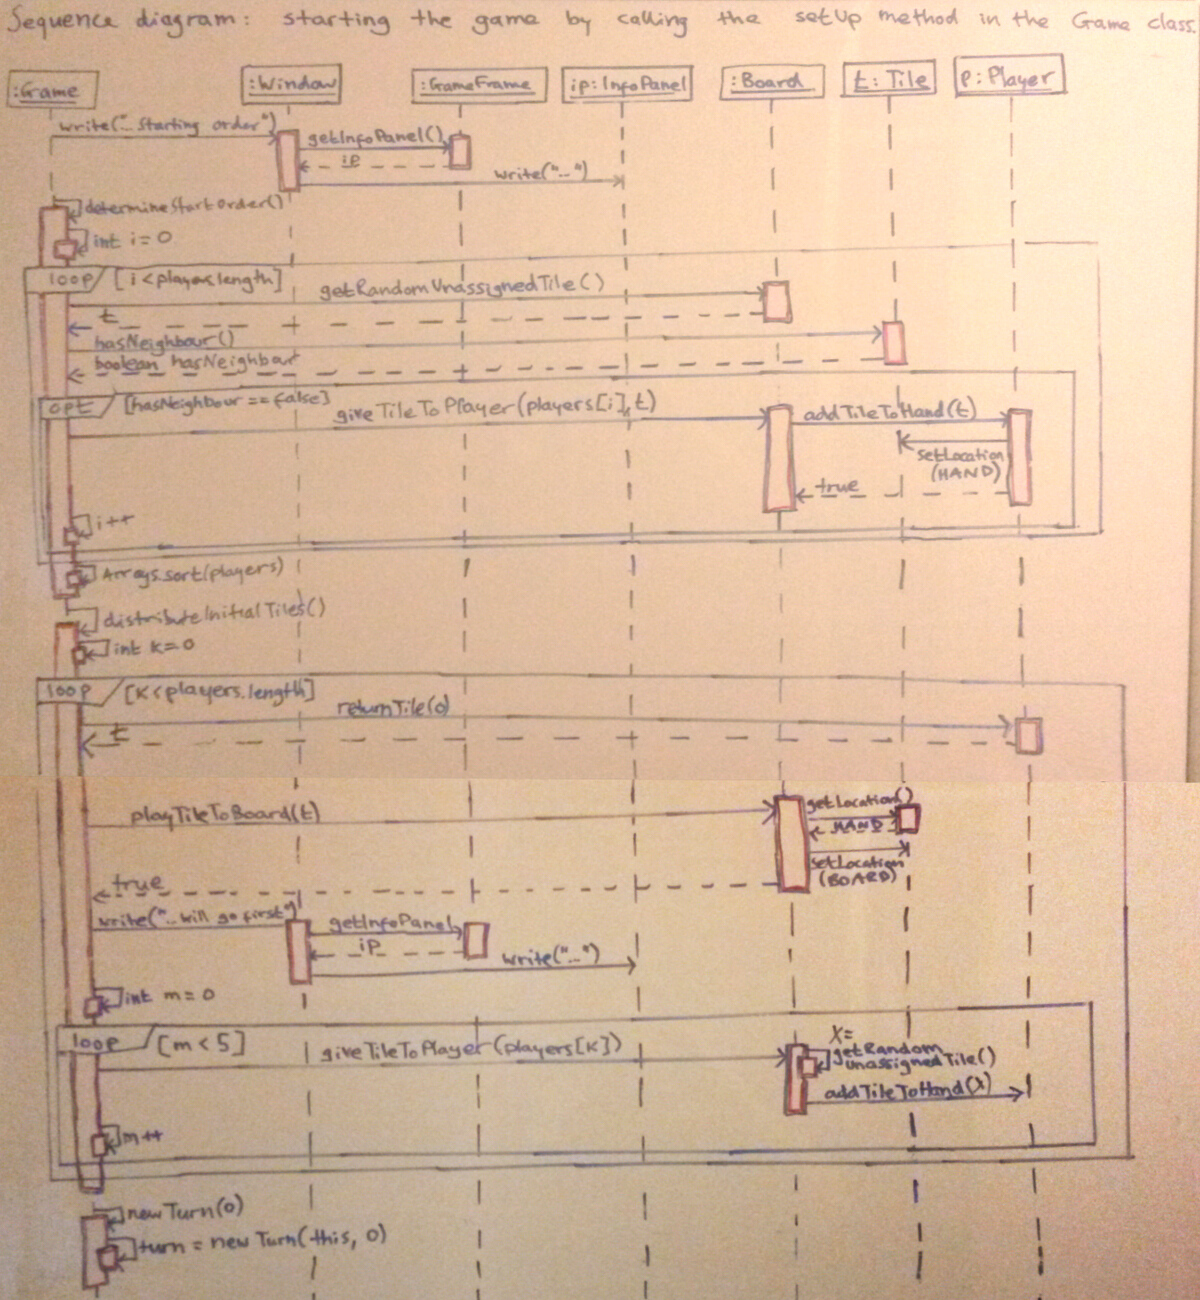 Sequence diagram: starting the game by calling the setUp method in the Game class.
:Game
:Window
:GameFrame
ip:InfoPanel
:Board
t:Tile
p:Player
write("... starting order")
getInfoPanel()
ip
write("...")
determineStartOrder()
int i=0
loop [i<players.length]
getRandomUnassignedTile()
t
hasNeighbour()
boolean hasNeighbour
opt [hasNeighbour == false]
giveTileToPlayer(players[i],t)
addTileToHand(t)
setLocation
(HAND)
true
i++
Arrays.sort(players)
distributeInitialTiles()
int k=0
loop [k<players.length]
returnTile(0)
t
playTileToBoard(t)
getLocation()
HAND
setLocation
(BOARD)
true
write("...will go first")
getInfoPanel
ip
write("...")
int m=0
loop [m<5]
giveTileToPlayer(players[k])
X=
getRandom
unassignedTile()
addTileToHand(X)
m++
newTurn(0)
turn = new Turn(this, 0)